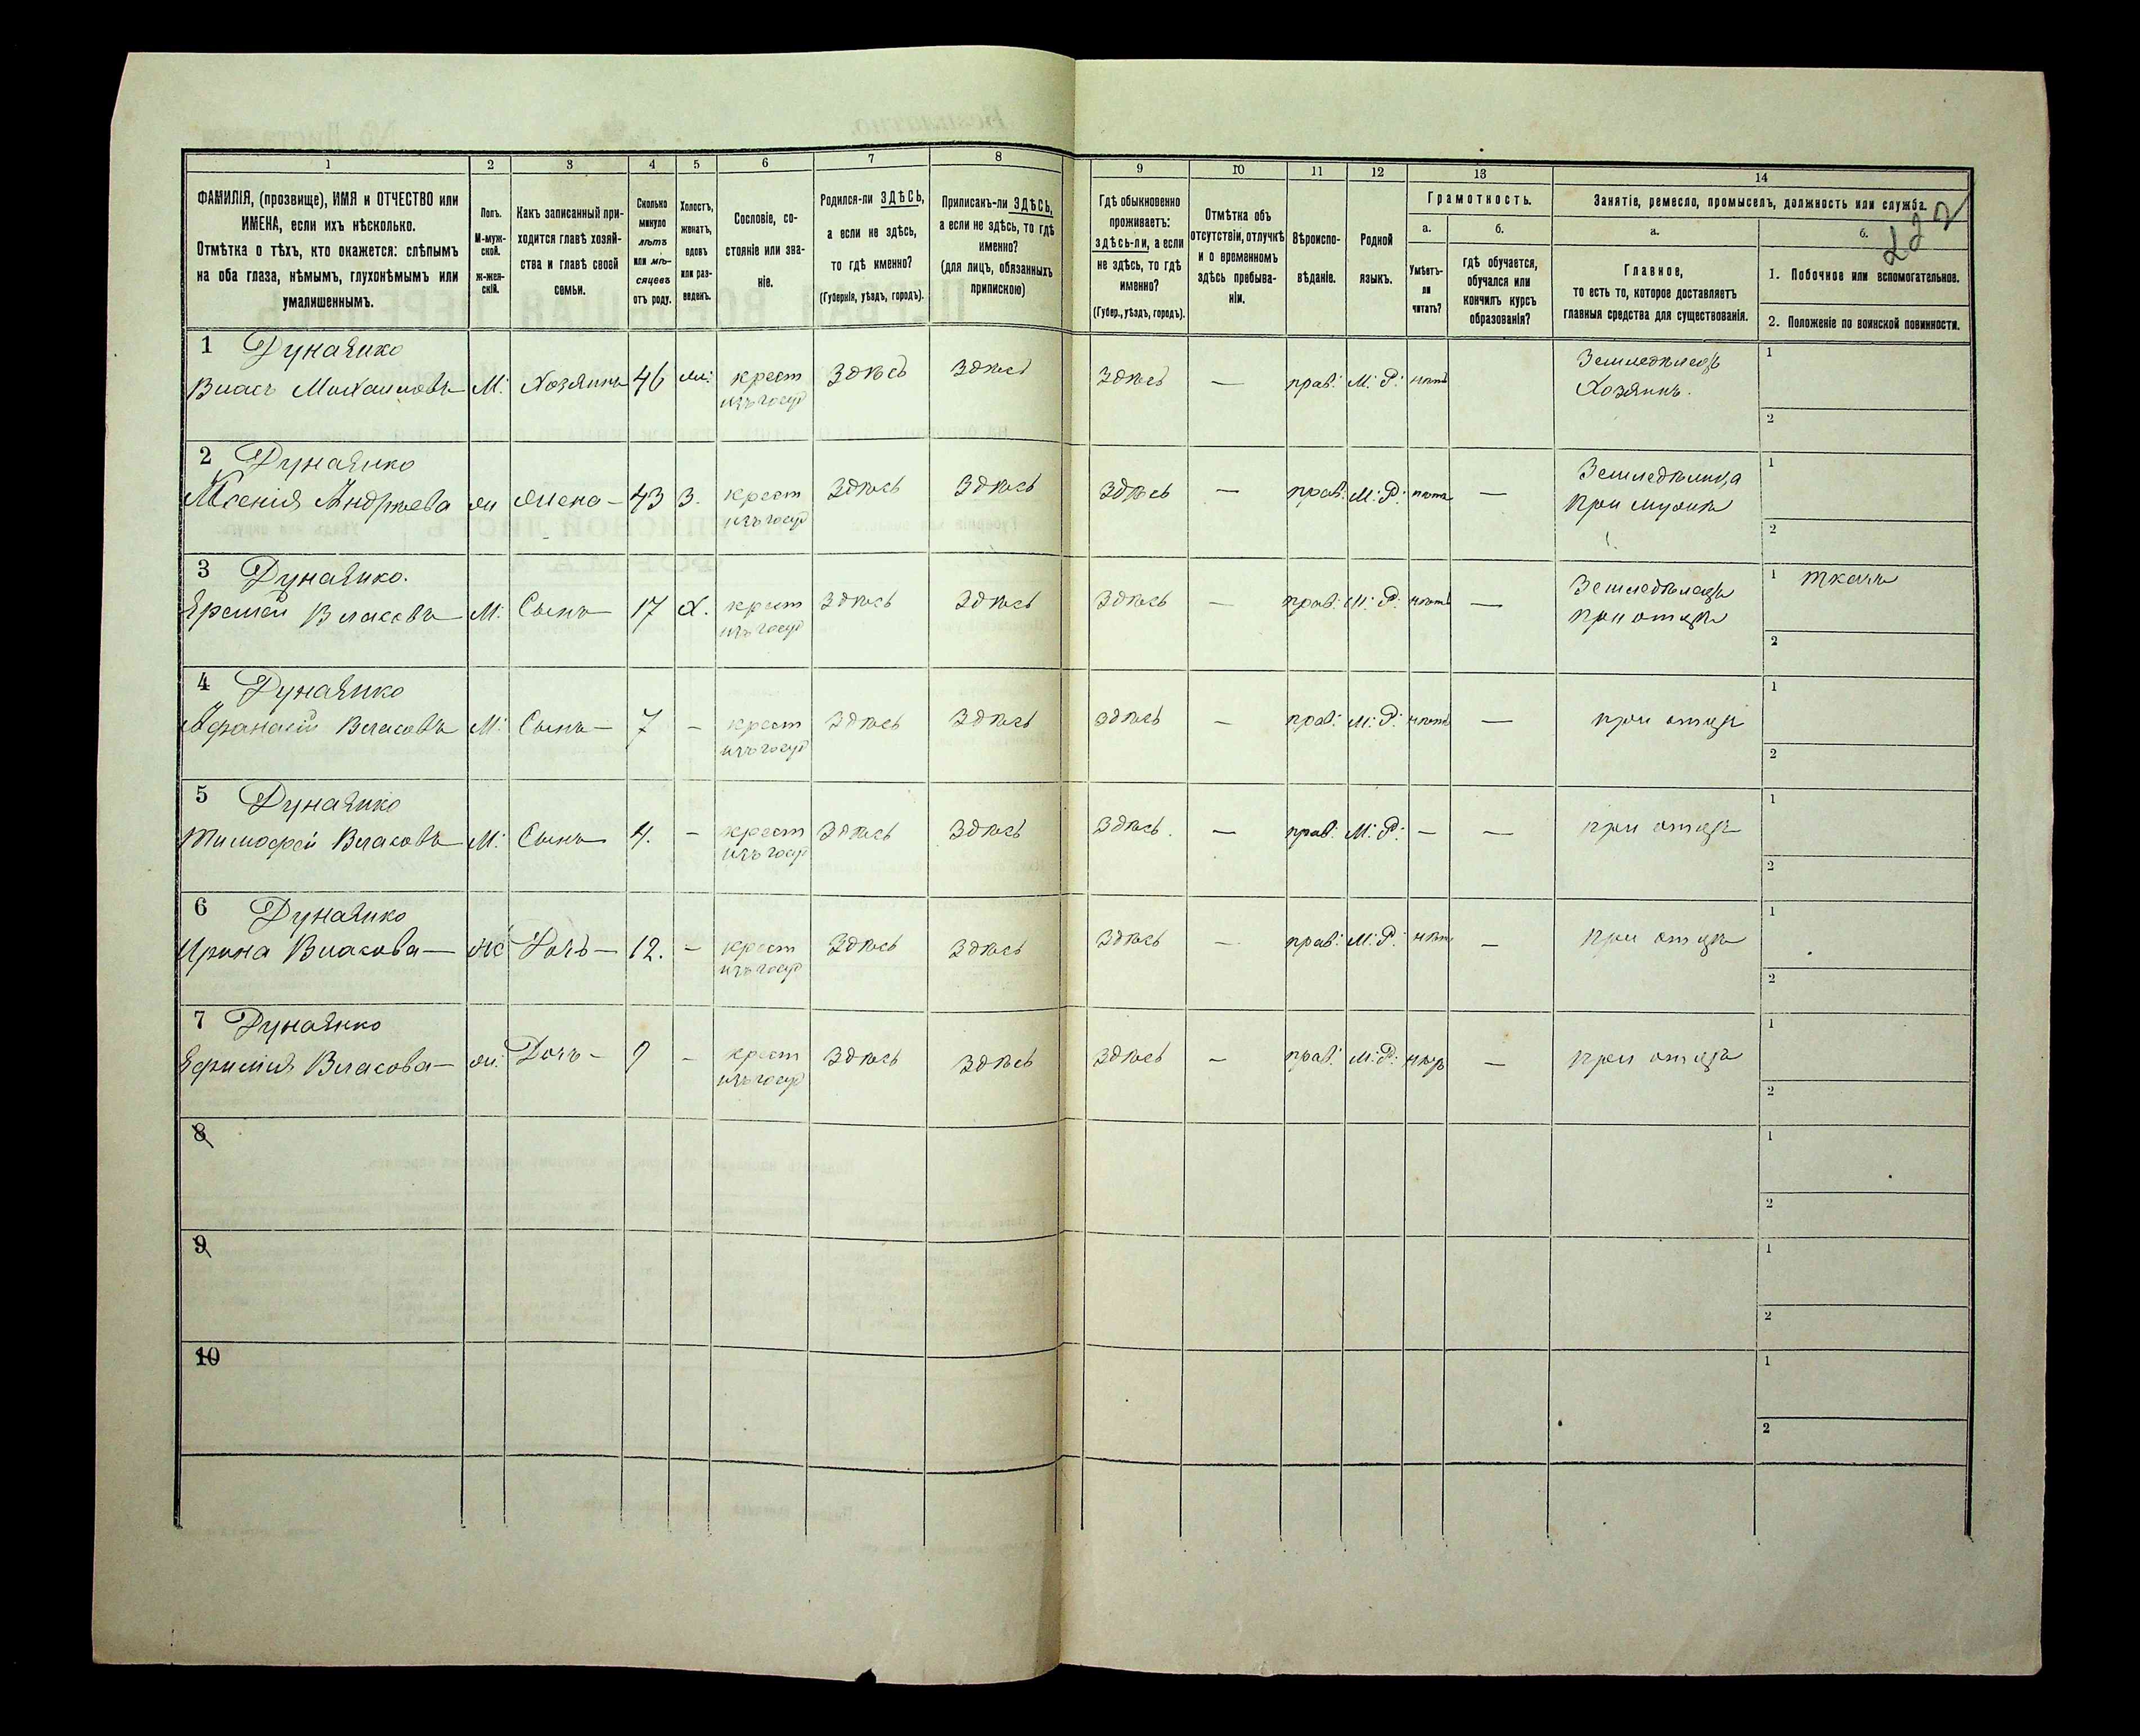 1 2 3 4 5 6 7 8 9 10 11 12 13 14
ФАМИЛІЯ, (прозвище), ИМЯ и ОТЧЕСТВО или
ИМЕНА, если ихъ нѣсколько.
Отмѣтка о тѣхъ, кто окажется: слѣпымъ
на оба глаза, нѣмымъ, глухонѣмымъ или
умалишеннымъ.
Полъ.
М-муж-
ской.
ж-жен-
скій.
Какъ записанный при-
ходится главѣ хозяй-
ства и главѣ своей
семьи.
Сколько
минуло
лѣтъ
или мѣ-
сяцевъ
отъ роду.
Холостъ,
женатъ,
вдовъ
или раз-
веденъ.
Сословіе, со-
стояніе или зва-
ніе.
Родился-ли ЗДѢСЬ,
а если не здѣсь,
то гдѣ именно?
(Губернія, уѣздъ, городъ).
Приписанъ-ли ЗДѢСЬ,
а если не здѣсь, то гдѣ
именно?
(для лицъ, обязанныхъ
припискою)
Гдѣ обыкновенно
проживаетъ:
здѣсь-ли, а если
не здѣсь, то гдѣ
именно?
(Губер., уѣздъ, городъ).
Отмѣтка объ
отсутствіи, отлучкѣ
и о временномъ
здѣсь пребыва-
ніи.
Вѣроиспо-
вѣданіе.
Родной
языкъ.
Грамотность.
а.
Умѣетъ-
ли
читать?
б.
гдѣ обучается,
обучался или
кончилъ курсъ
образованія?
Занятіе, ремесло, промыселъ, должность или служба.
222
а.
Главное,
то есть то, которое доставляетъ
главныя средства для существованія.
б.
1. Побочное или вспомогательное.
2. Положеніе по воинской повинности.
1 Дунаенко
Власъ Михаиловъ М: Хозяинъ 46 ж: крест здѣсь здѣсь здѣсь — прав: М: Р: нѣтъ Земледѣлецъ 1
изъ госуд Хозяинъ. 2
2 Дунаенко
Ксенія Андреева ж жена — 43 З. крест здѣсь здѣсь здѣсь — прав: М: Р: нѣтъ — Земледѣлица 1
изъ госуд При мужѣ 2
3 Дунаенко.
Еремей Власовъ М: Сынъ 17 х. крест здѣсь здѣсь здѣсь — прав: М: Р: нѣтъ — Земледѣлецъ 1 ткачъ
изъ госуд при отцѣ 2
4 Дунаенко
Афанасій Власовъ М: Сынъ — 7 — крест здѣсь здѣсь здѣсь — прав: М: Р: нѣтъ — при отцѣ 1
изъ госуд 2
5 Дунаенко
Тимофей Власовъ М: Сынъ 4. — крест здѣсь здѣсь здѣсь. — прав: М: Р: — — при отцѣ 1
изъ госуд 2
6 Дунаенко
Ирина Власова — Ж Дочь — 12. — крест здѣсь здѣсь здѣсь — прав: М: Р: нѣтъ — при отцѣ 1
изъ госуд 2
7 Дунаенко
Ефимія Власова — ж: Дочь — 9 — крест здѣсь здѣсь здѣсь — прав: М: Р: — при отцѣ 1
изъ госуд 2
8 1
2
9 1
2
10 1
2